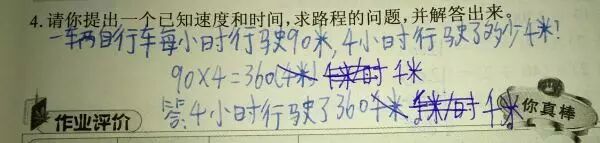 4.请你提出一个已知速度和时间,求路程的问题,并解答出来。
一车两自行车每小时行驶90米,4小时行驶了多少千米?
90×4=360(千米) 千米/时 千米
答:4小时行驶了360千米 千米/时 千米
作业评价
你真棒